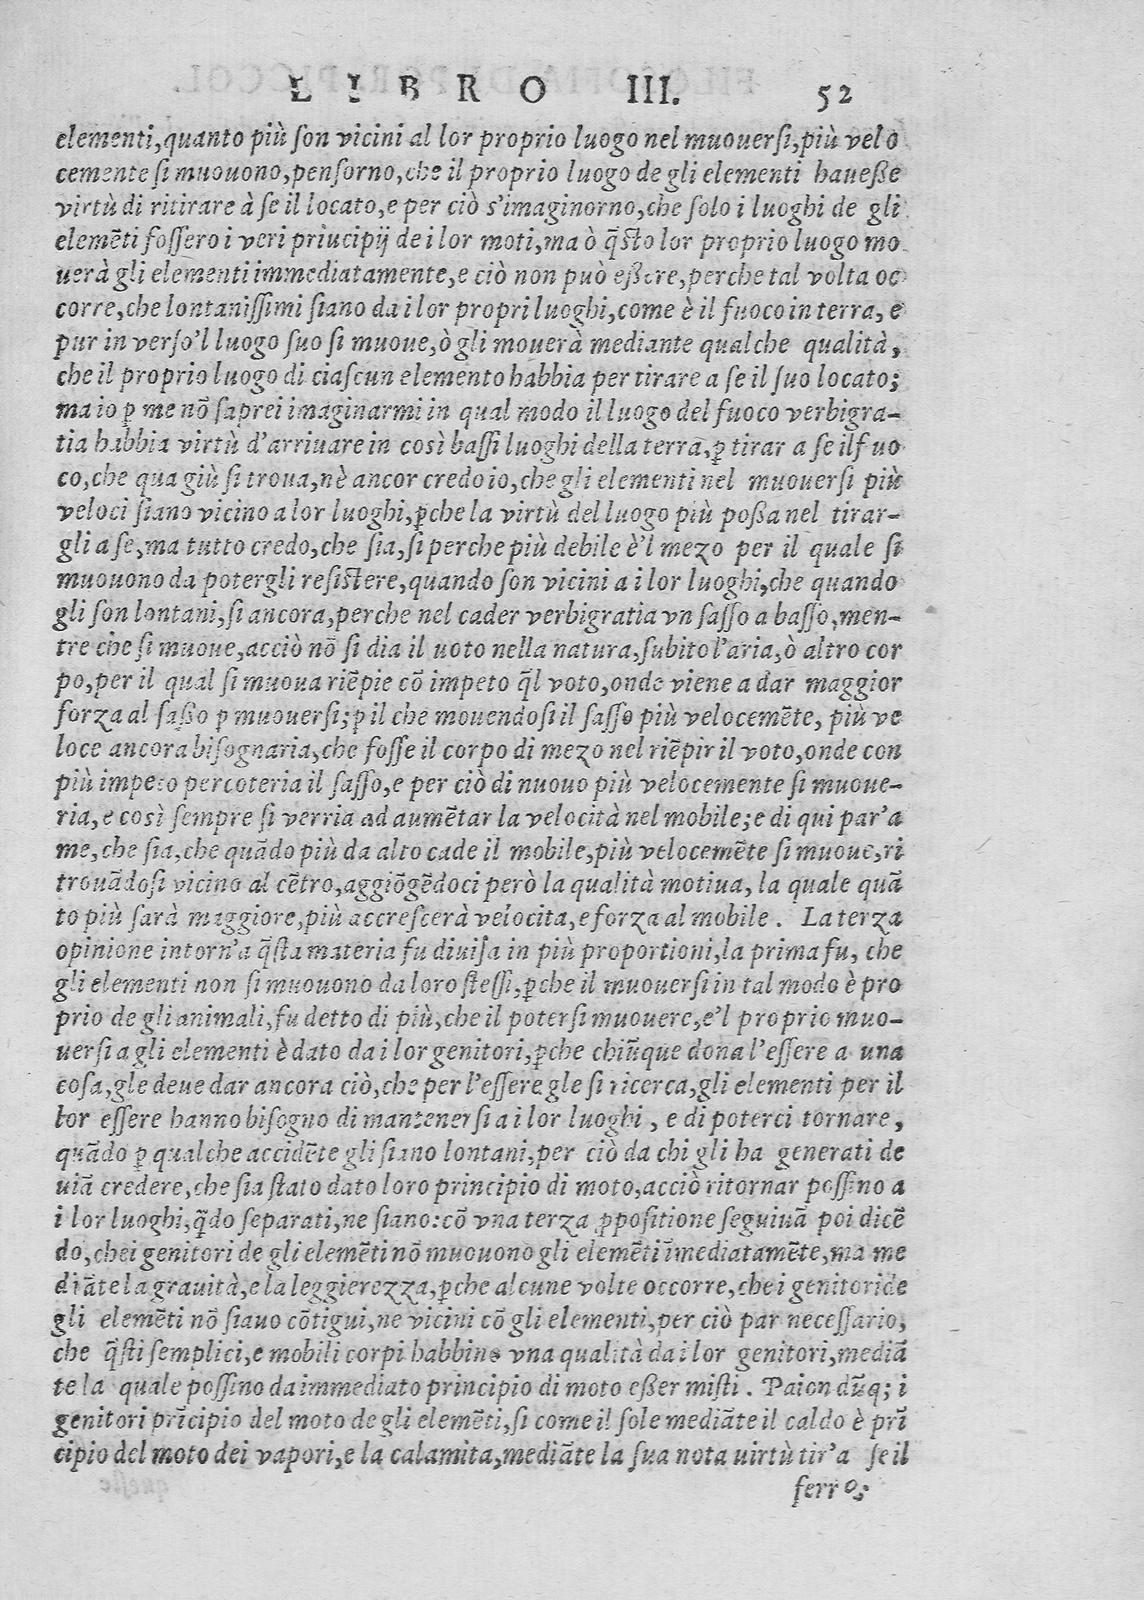 LIBRO III. 52
elementi,quanto più ſon vicini al lor proprio luogo nel muouerſi,più velo
cemente ſi muouono,penſorno,che il proprio luogo de gli elementi haueße
virtù di ritirare à ſe il locato,e per ciò s'imaginorno,che ſolo i luoghi de gli
elemẽti foſſero i veri priucipij de i lor moti,ma ò q̃ſto lor proprio luogo mo
uerà gli elementi immediatamente,e ciò non può eßere,perche tal volta oc
corre,che lontaniſſimi ſiano da i lor propri luoghi,come è il fuoco in terra, e
pur in verſo'l luogo ſuo ſi muoue,ò gli mouerà mediante qualche qualità,
che il proprio luogo di ciaſcun elemento habbia per tirare a ſe il ſuo locato;
ma io p̱ me nõ ſaprei imaginarmi in qual modo il luogo del fuoco verbigra-
tia habbia virtù d'arriuare in così baſſi luoghi della terra,p̱ tirar a ſe il fuo
co,che qua giù ſi troua,nè ancor credo io,che gli elementi nel muouerſi più
veloci ſiano vicino a lor luoghi,p̱che la virtù del luogo più poßa nel tirar-
gli a ſe,ma tutto credo,che ſia,ſi perche più debile è'l mezo per il quale ſi
muouono da potergli reſiſtere,quando ſon vicini a i lor luoghi,che quando
gli ſon lontani,ſi ancora,perche nel cader verbigratia vn ſaſſo a baſſo,men-
tre che ſi muoue,acciò nõ ſi dia il uoto nella natura,ſubito l'aria,ò altro cor
po,per il qual ſi muoua riẽpie cõ impeto q̃l voto,onde viene a dar maggior
forza al ſaßo p̱ muouerſi;p̱ il che mouendoſi il ſaſſo più velocemẽte, più ve
loce ancora biſognaria,che foſſe il corpo di mezo nel riẽpir il voto,onde con
più impeto percoteria il ſaſſo,e per ciò di nuouo più velocemente ſi moue-
ria,e così ſempre ſi verria ad aumẽtar la velocità nel mobile;e di qui par'a
me,che ſia,che quãdo più da alto cade il mobile,più velocemẽte ſi muoue,ri
trouãdoſi vicino al cẽtro,aggiõgẽdoci però la qualità motiua, la quale quã
to più ſarà maggiore,più accreſcerà velocita,e forza al mobile. La terza
opinione intorn'a q̃ſta materia fu diuiſa in più proportioni,la prima fu, che
gli elementi non ſi muouono da loro ſteſſi,p̱che il muouerſi in tal modo è pro
prio de gli animali,fu detto di più,che il poterſi muouere,e'l proprio muo-
uerſi a gli elementi è dato da i lor genitori,p̱che chiũque dona l'eſſere a una
coſa,gle deue dar ancora ciò,che per l'eſſere gle ſi ricerca,gli elementi per il
lor eſſere hanno biſogno di mantenerſi a i lor luoghi, e di poterci tornare,
quãdo p̱ qualche accidẽte gli ſiano lontani,per ciò da chi gli ha generati de
uiã credere,che ſia ſtato dato loro principio di moto,acciò ritornar poſſino a
i lor luoghi,q̃do ſeparati,ne ſiano:cõ vna terza p̱poſitione ſeguiuã poi dicẽ
do,che i genitori de gli elemẽti nõ muouono gli elemẽti ĩmediatamẽte,ma me
diãte la grauità,e la leggierezza,p̱che alcune volte occorre,che i genitori de
gli elemẽti nõ ſiauo cõtigui,ne vicini cõ gli elementi,per ciò par neceſſario,
che q̃ſti ſemplici,e mobili corpi habbino vna qualità da i lor genitori,mediã
te la quale poſſino da immediato principio di moto eßer miſti. Paion dũq; i
genitori prĩcipio del moto de gli elemẽti,ſi come il ſole mediãte il caldo è prĩ
cipio del moto dei vapori,e la calamita,mediãte la ſua nota uirtù tir'a ſe il
ferro;